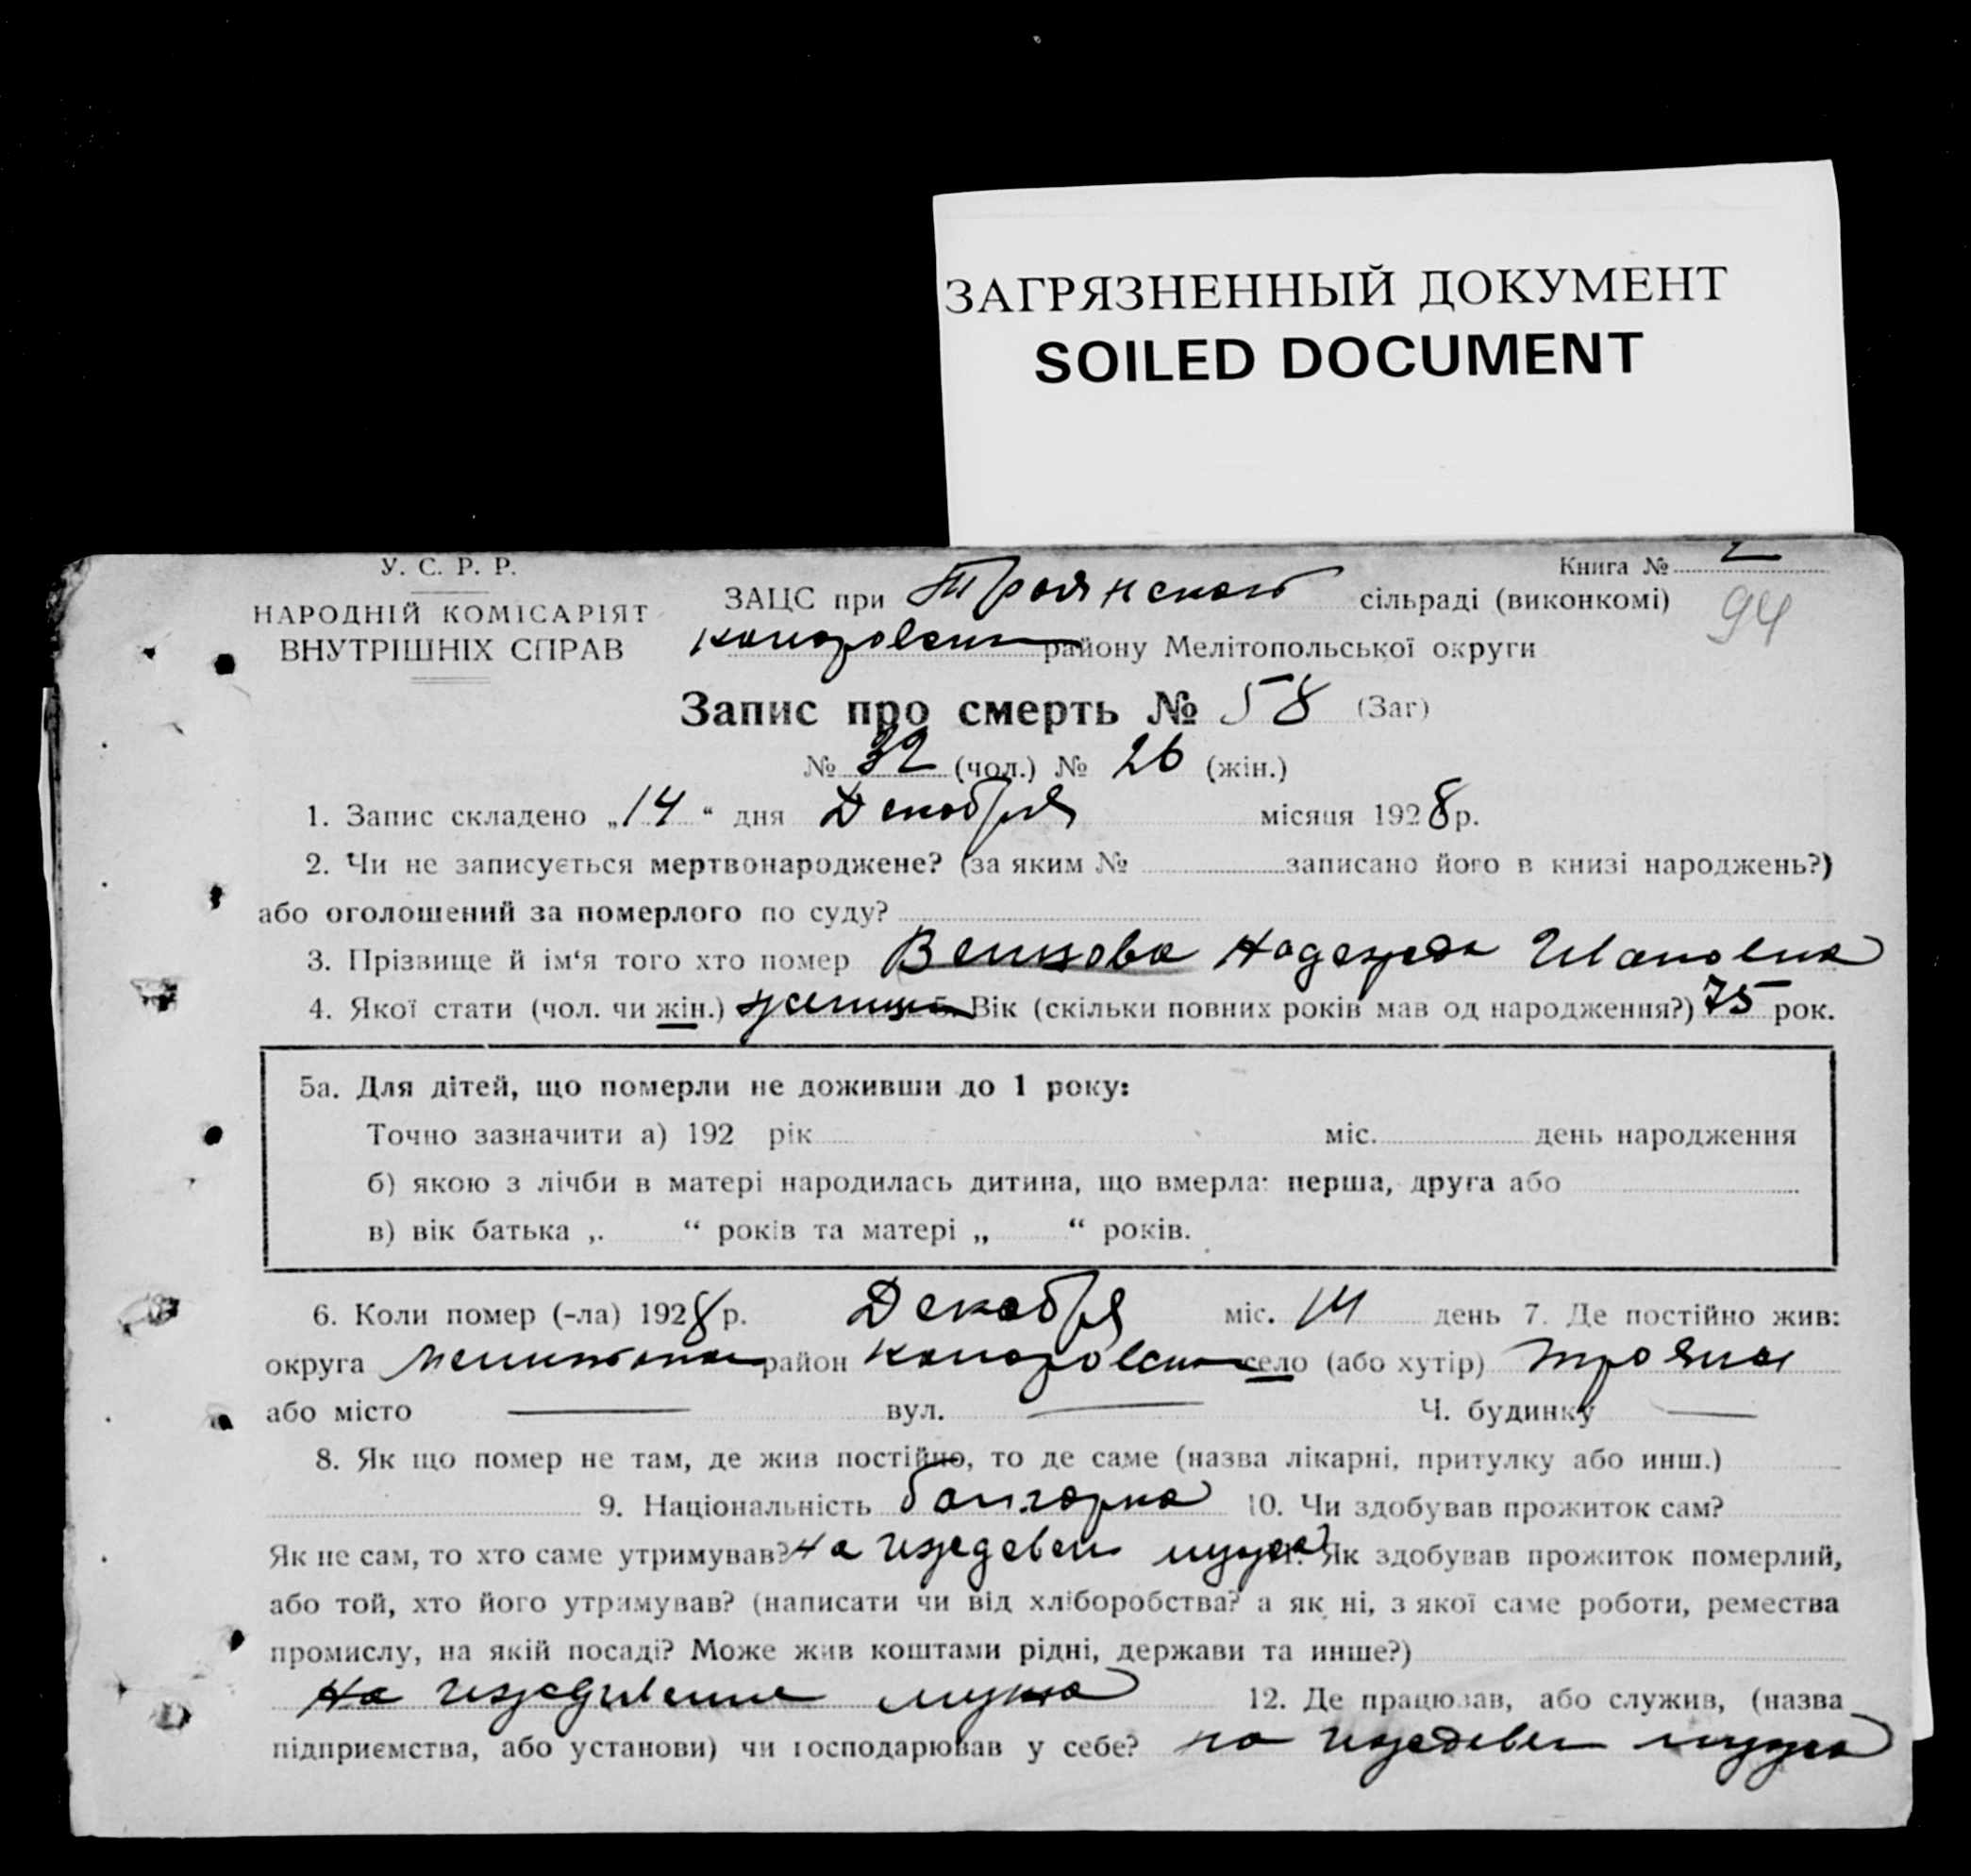 ЗАГРЯЗНЕННЫЙ ДОКУМЕНТ
SOILED DOCUMENT
У. С. Р. Р.
НАРОДНІЙ КОМІСАРІЯТ
ВНУТРІШНІХ СПРАВ
Книга № 2
94
ЗАЦС при Троянском сільраді (виконкомі)
району Мелітопольської округи
Запис про смерть № 58 (Заг)
№ 32 (чол.) № 26 (жін.)
1. Запис складено „14“ дня Декабря місяця 1928 р.
2. Чи не записується мертвонароджене? (за яким № записано його в книзі народжень?)
або оголошений за померлого по суду?
3. Прізвище й ім‘я того хто помер Надежда
4. Якої стати (чол. чи жін.) 5. Вік (скільки повних років мав од народження?) 75 рок.
5а. Для дітей, що померли не доживши до 1 року:
Точно зазначити а) 192 рік міс. день народження
б) якою з лічби в матері народилась дитина, що вмерла: перша, друга або
в) вік батька „ “ років та матері „ “ років.
6. Коли помер (-ла) 1928 р. Декабря міс. 14 день 7. Де постійно жив:
округа район село (або хутір) Трояны
або місто — вул. — Ч. будинку —
8. Як що помер не там, де жив постійно, то де саме (назва лікарні, притулку або инш.)
9. Національність болгарка 10. Чи здобував прожиток сам?
Як не сам, то хто саме утримував? на иждевен мужа 11. Як здобував прожиток померлий,
або той, хто його утримував? (написати чи від хліборобства? а як ні, з якої саме роботи, ремества
промислу, на якій посаді? Може жив коштами рідні, держави та инше?)
на иждивение мужа 12. Де працював, або служив, (назва
підприємства, або установи) чи господарював у себе? на иждевен мужа